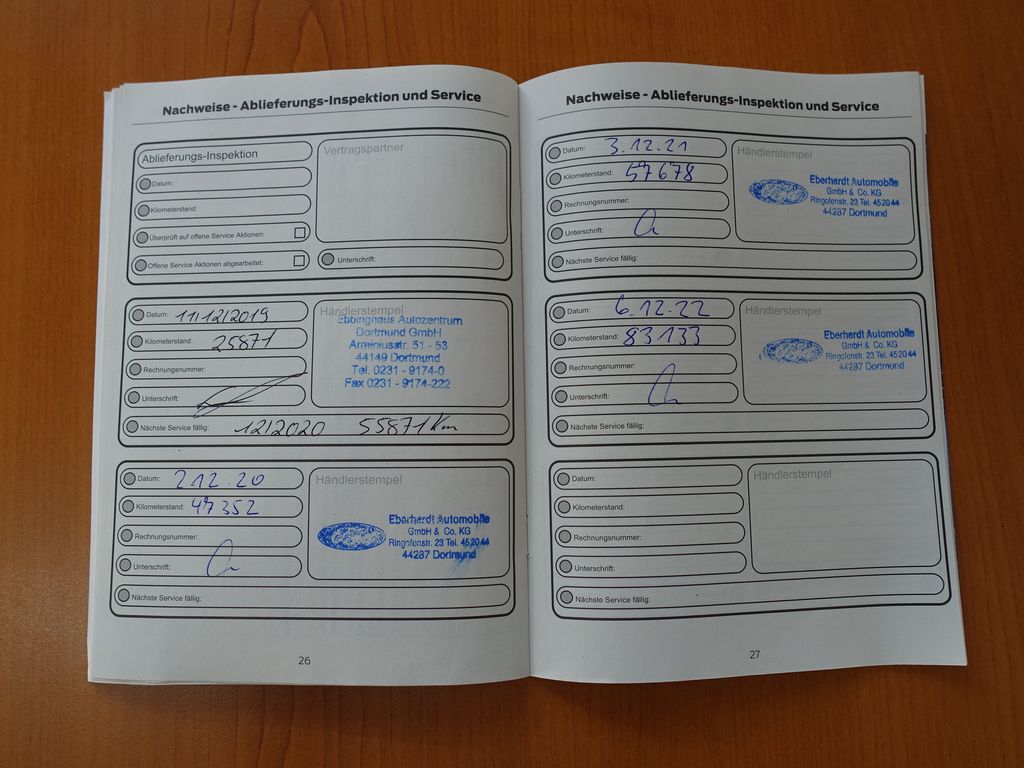 Nachweise - Ablieferungs-Inspektion und Service
Ablieferungs-Inspektion
Datum:
Kilometerstand:
Überprüft auf offene Service Aktionen:
Offene Service Aktionen abgearbeitet:
Vertragspartner
Unterschrift:
Datum: 11/12/2019
Kilometerstand: 25871
Rechnungsnummer:
Unterschrift:
Händlerstempel
ebbinghaus Autozentrum
Dortmund GmbH
Arminiusstr. 51 - 53
44149 Dortmund
Tel. 0231 - 9174-0
Fax 0231 - 9174-222
Nächste Service fällig: 12/2020 55871 Km
Datum: 2.12.20
Kilometerstand: 47352
Rechnungsnummer:
Unterschrift:
Händlerstempel
Eberhardt Automobile
GmbH & Co. KG
Ringofenstr. 23 Tel. 45 20 44
44287 Dortmund
Nächste Service fällig:
26
Nachweise - Ablieferungs-Inspektion und Service
Datum: 3.12.21
Kilometerstand: 57678
Rechnungsnummer:
Unterschrift:
Händlerstempel
Eberhardt Automobile
GmbH & Co. KG
Ringofenstr. 23 Tel. 45 20 44
44287 Dortmund
Nächste Service fällig:
Datum: 6.12.22
Kilometerstand: 83133
Rechnungsnummer:
Unterschrift:
Händlerstempel
Eberhardt Automobile
GmbH & Co. KG
Ringofenstr. 23 Tel. 45 20 44
44287 Dortmund
Nächste Service fällig:
Datum:
Kilometerstand:
Rechnungsnummer:
Unterschrift:
Händlerstempel
Nächste Service fällig:
27